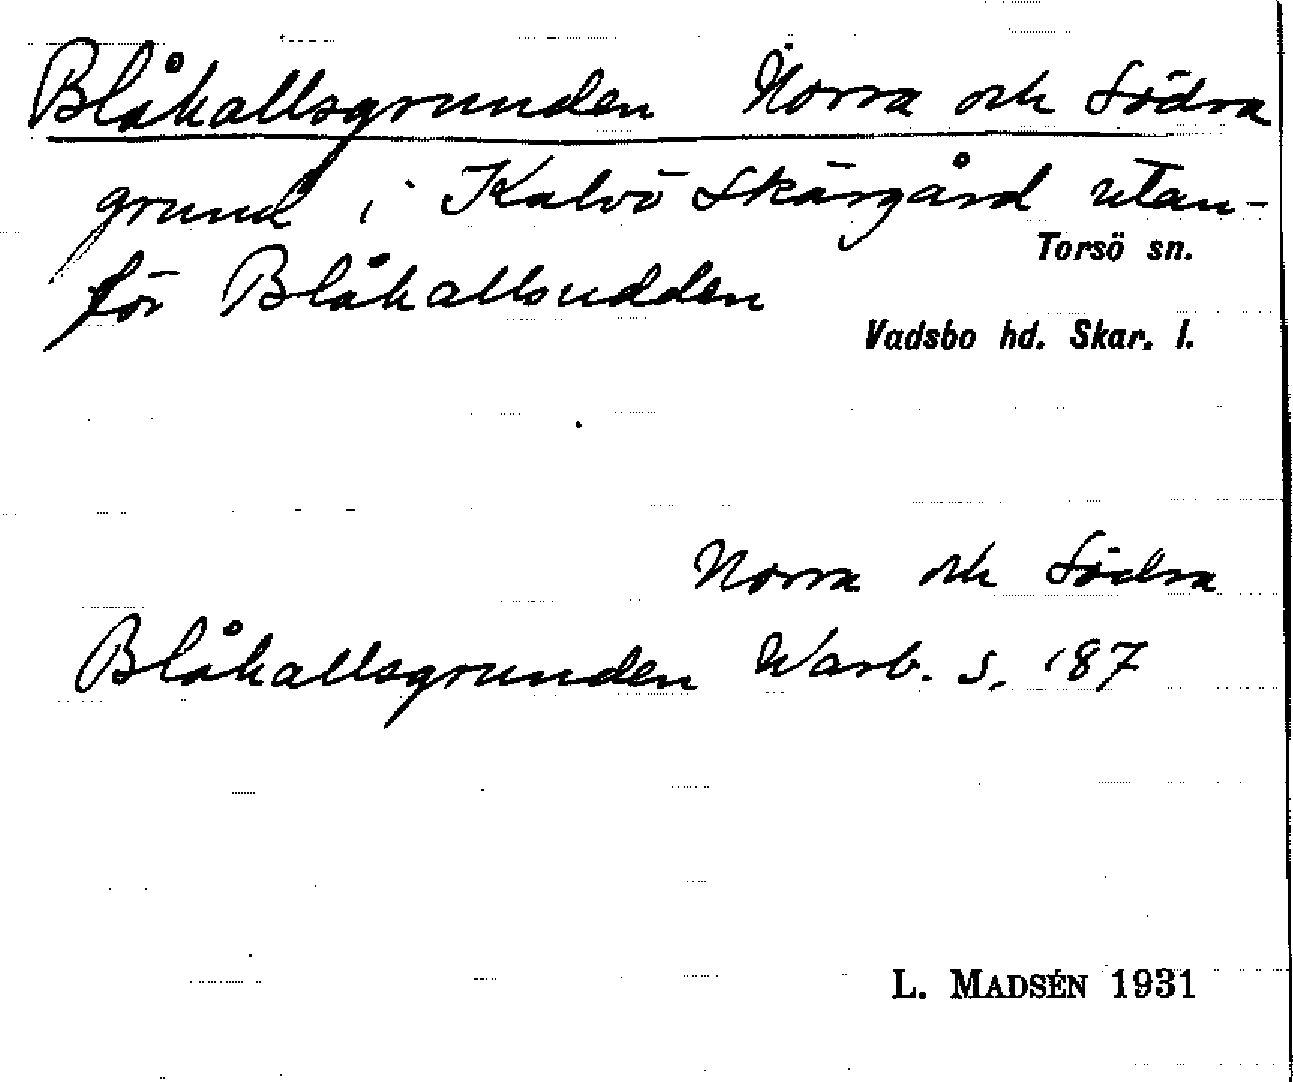 Blåhallsgrunden Norra och Södra
grund i Kalvö Skärgård utan-
Torsö sn.
för Blåhallsudden
Vadsbo hd. Skar. l.
Norra och Södra
Blåhallsgrunden Warb. s. 187
L. MADSÉN 1931